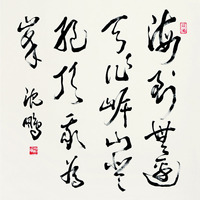 海到無邊
天作岸山登
絕頂我為
峯
沈鵬